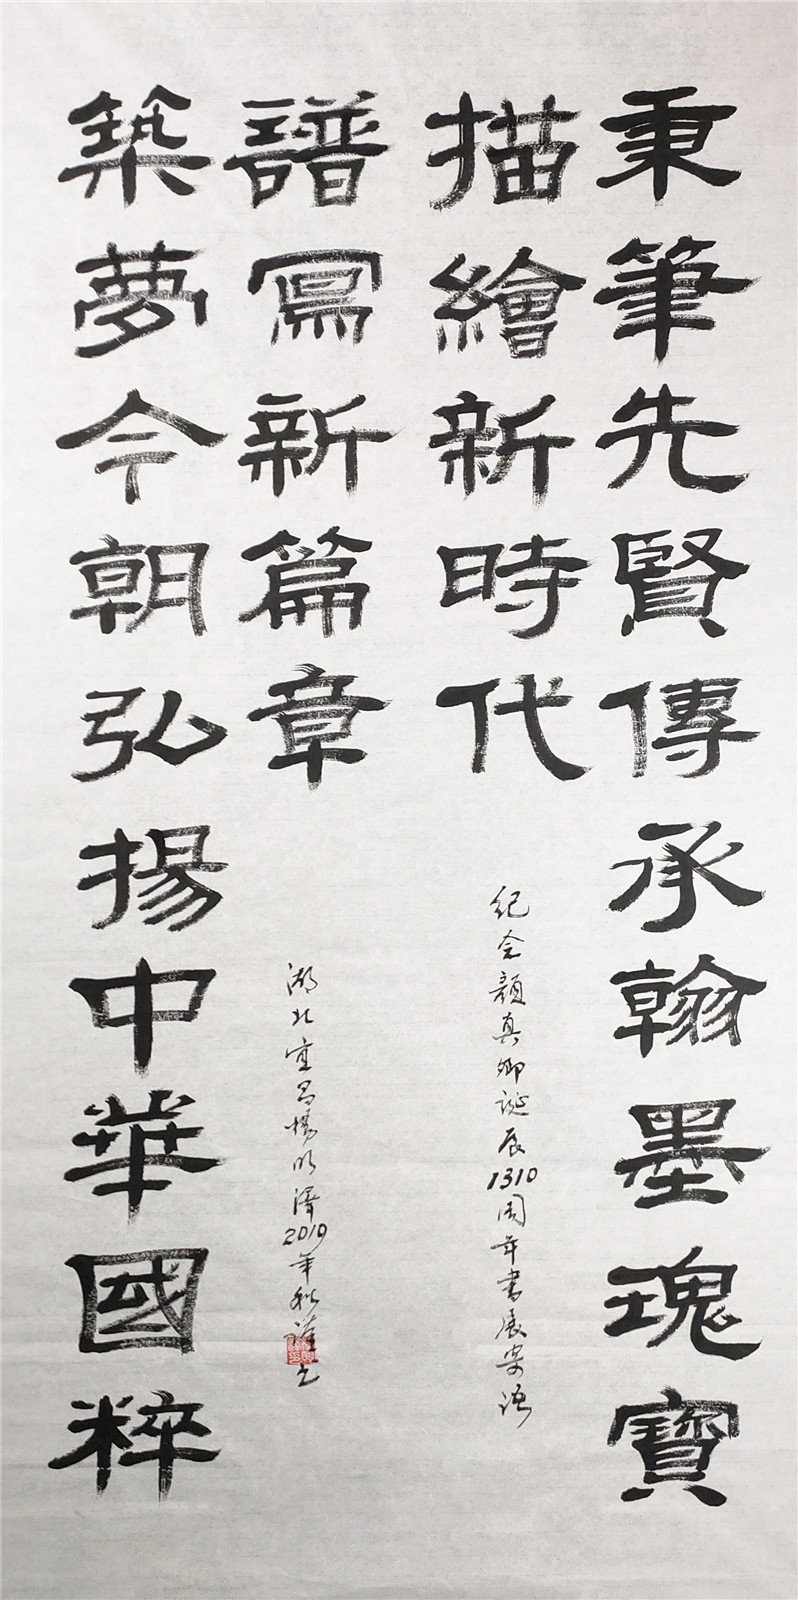 秉筆先賢傳承翰墨瑰寶
描繪新時代
紀念顏真卿誕辰1310周年書展寄語
築夢今朝弘揚中華國粹
譜寫新篇章
湖北宜昌楊明澤2019年秋謹